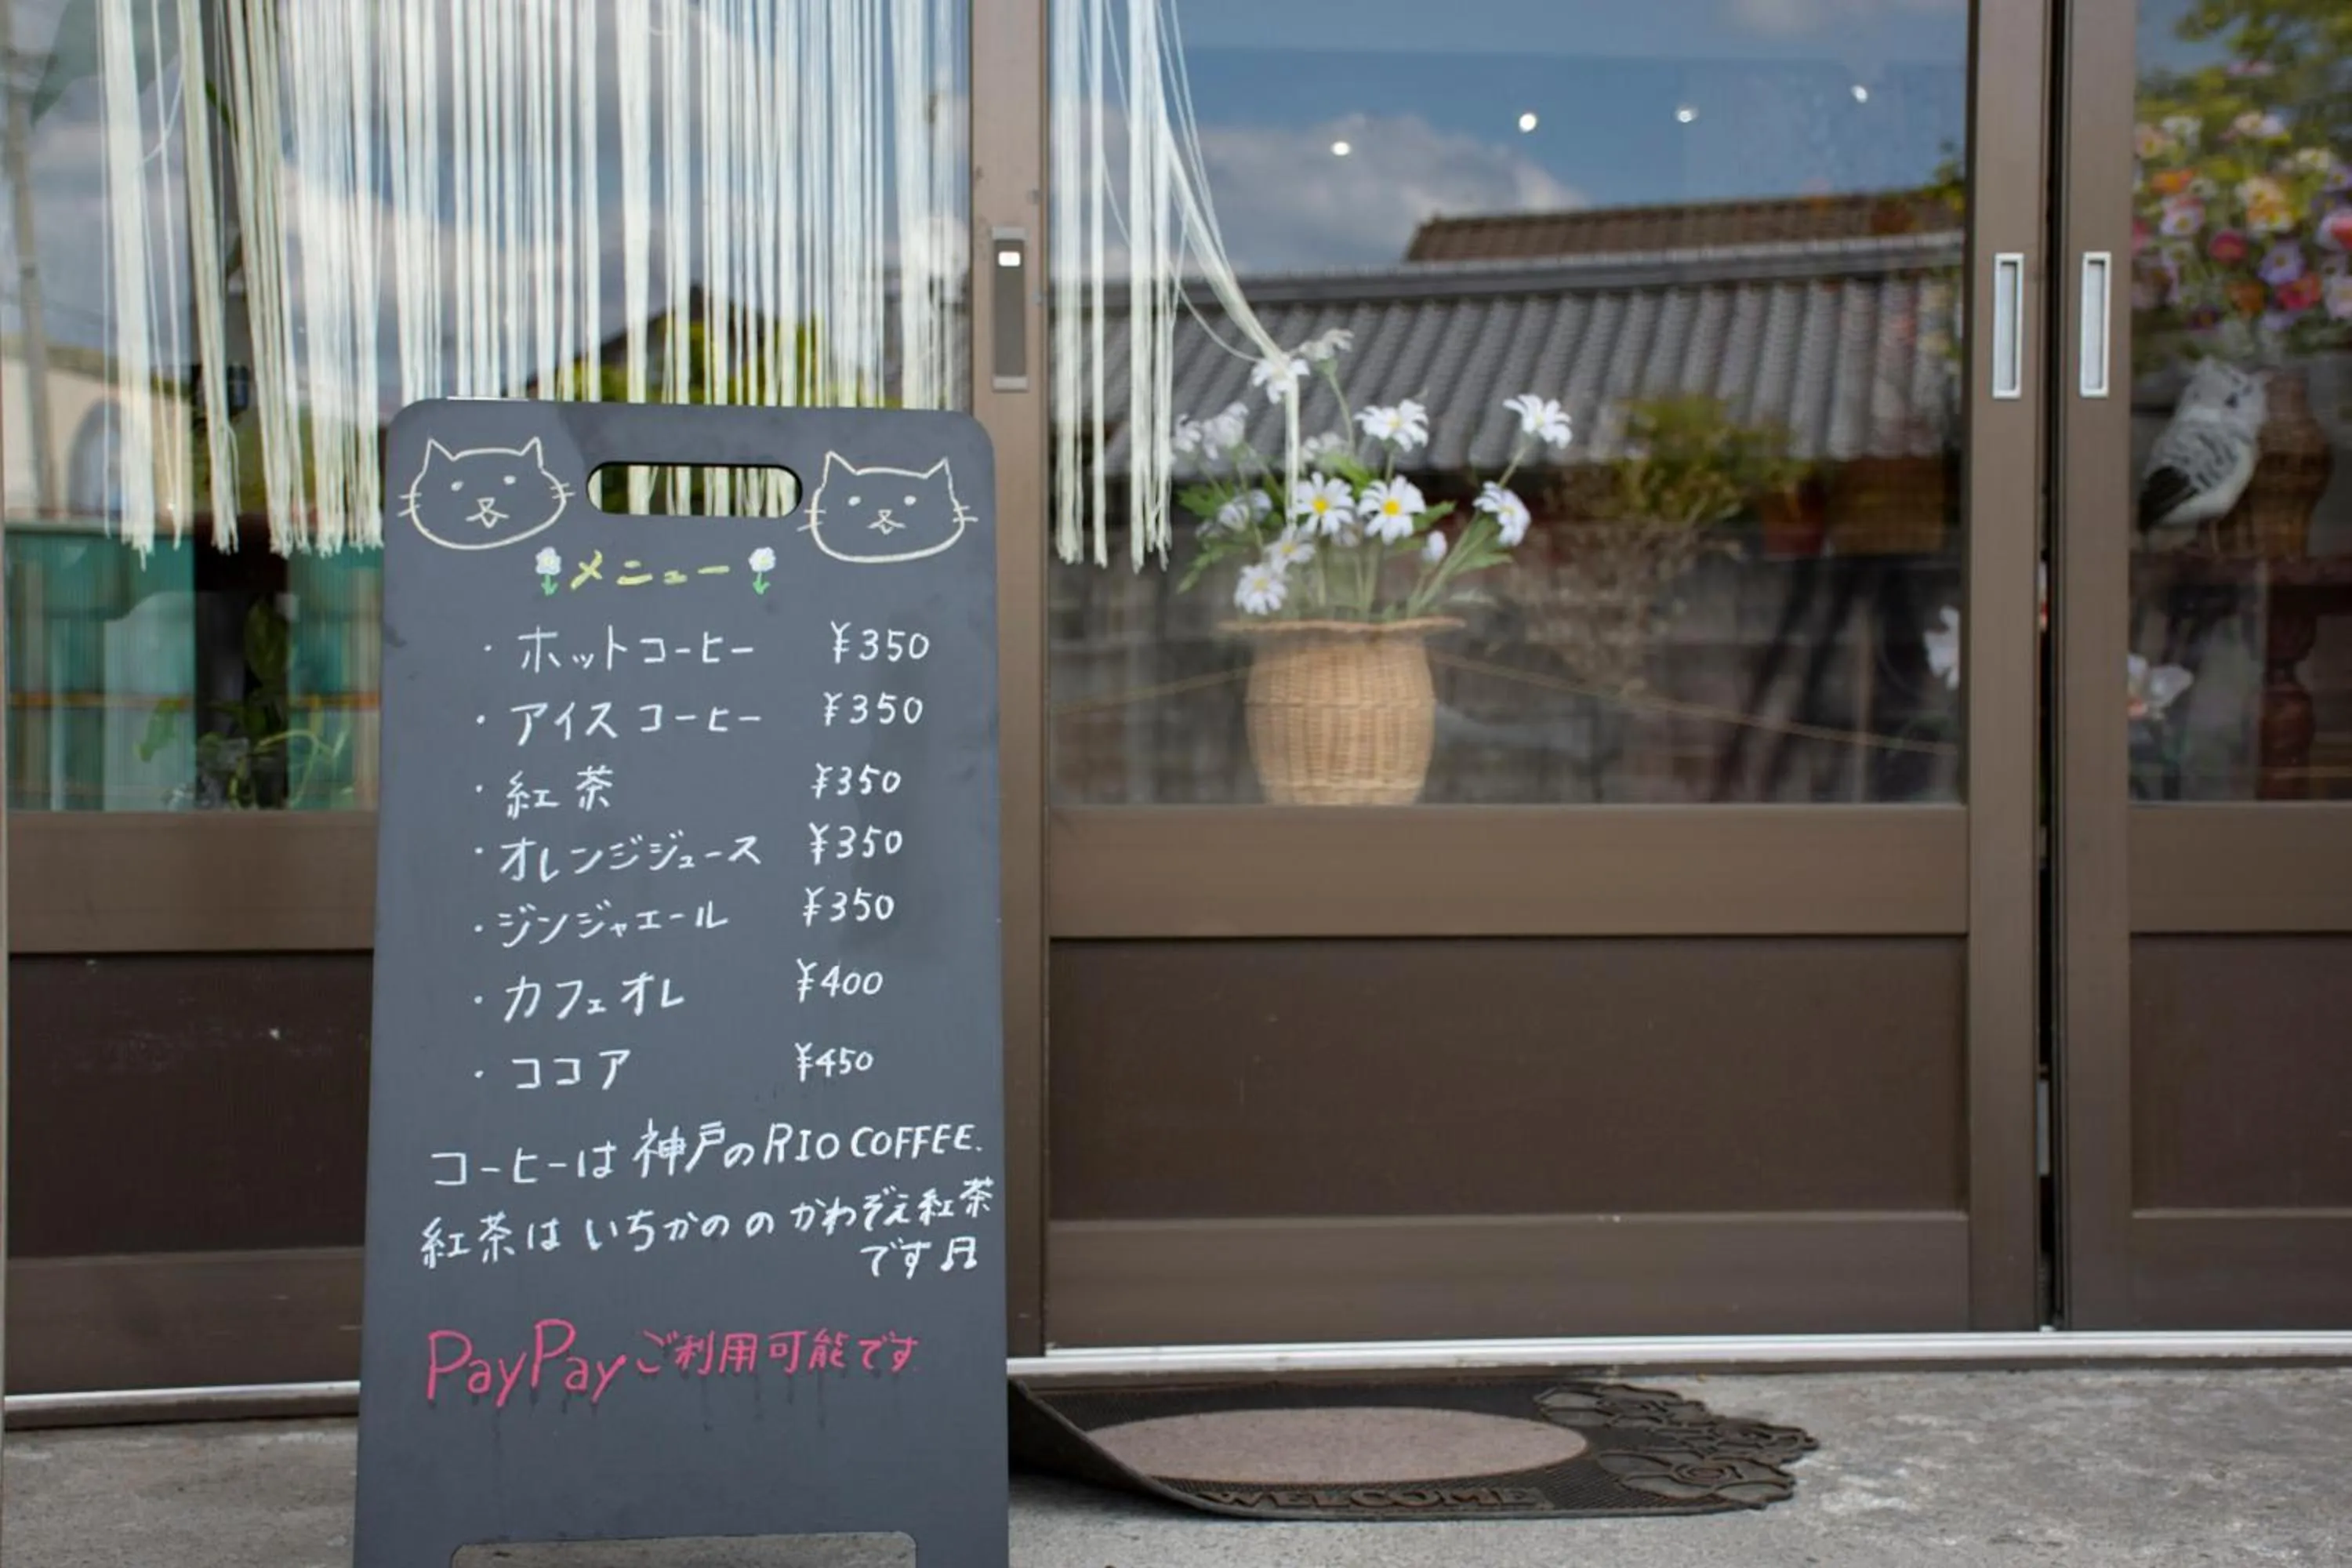 メニュー
・ホットコーヒー ¥350
・アイスコーヒー ¥350
・紅茶 ¥350
・オレンジジュース ¥350
・ジンジャエール ¥350
・カフェオレ ¥400
・ココア ¥450
コーヒーは神戸のRIO COFFEE.
紅茶はいちかののかわぞえ紅茶
です♫
PayPayご利用可能です
WELCOME